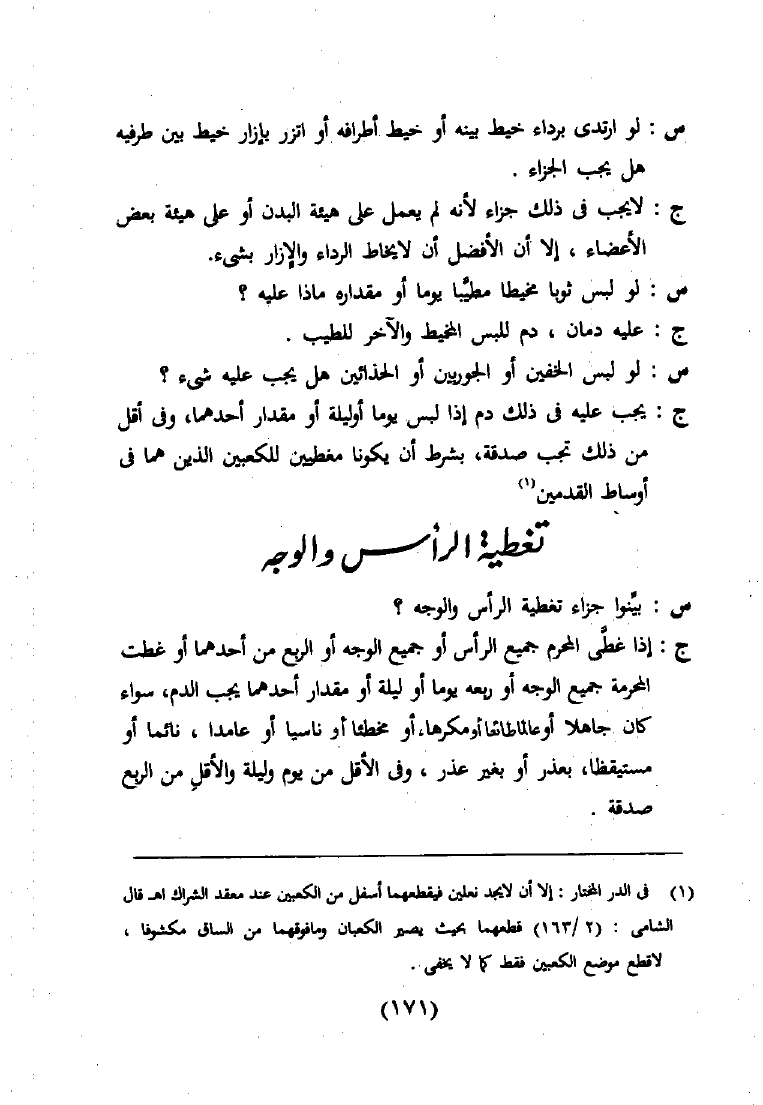 س : لو ارتدى برداء خيط بينه أو خيط أطرافه أو اتزر بإزار خيط بين طرفيه
هل يجب الجزاء .
ج : لايجب فى ذلك جزاء لأنه لم يعمل على هيئة البدن أو على هيئة بعض
الأعضاء ، إلا أن الأفضل أن لايخاط الرداء والإزار بشىء.
س : لو لبس ثوبا مخيطا مطيَّبا يوما أو مقداره ماذا عليه ؟
ج : عليه دمان ، دم للبس المخيط والآخر للطيب .
س : لو لبس الخفين أو الجوربين أو الحذائين هل يجب عليه شىء ؟
ج : يجب عليه فى ذلك دم إذا لبس يوما أوليلة أو مقدار أحدهما، وفى أقل
من ذلك تجب صدقة، بشرط أن يكونا مغطيين للكعبين الذين هما فى
أوساط القدمين(١)
تغطية الرأس والوجه
س : بيِّنوا جزاء تغطية الرأس والوجه ؟
ج : إذا غطَّى المحرم جميع الرأس أو جميع الوجه أو الربع من أحدهما أو غطت
المحرمة جميع الوجه أو ربعه يوما أو ليلة أو مقدار أحدهما يجب الدم، سواء
كان جاهلا أوعالماطائعا أومكرها،أو مخطئا أو ناسيا أو عامدا ، نائما أو
مستيقظا، بعذر أو بغير عذر ، وفى الأقل من يوم وليلة والأقل من الربع
صدقة .
(١) فى الدر المختار : إلا أن لايجد نعلين فيقطعهما أسفل من الكعبين عند معقد الشراك اهـ قال
الشامى : (٢/ ١٦٣) قطعهما بحيث يصير الكعبان ومافوقهما من الساق مكشوفا ،
لاقطع موضع الكعبين فقط كما لا يخفى .
(١٧١)